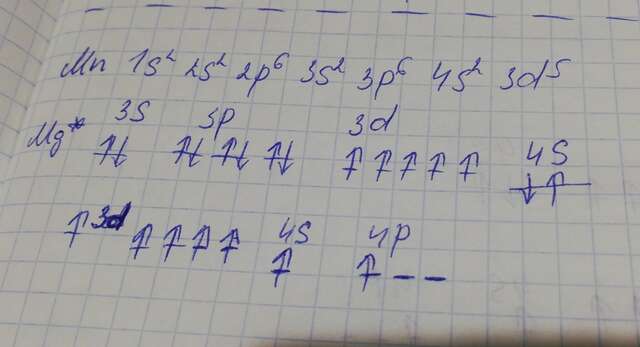 Mn 1s² 2s² 2p⁶ 3s² 3p⁶ 4s² 3d⁵
3s 3p 3d
Mg* ↑↓ ↑↓ ↑↓ ↑↓ ↑ ↑ ↑ ↑ ↑ 4s
↓↑
3d 4s 4p
↑ ↑ ↑ ↑ ↑ ↑ ↑ _ _